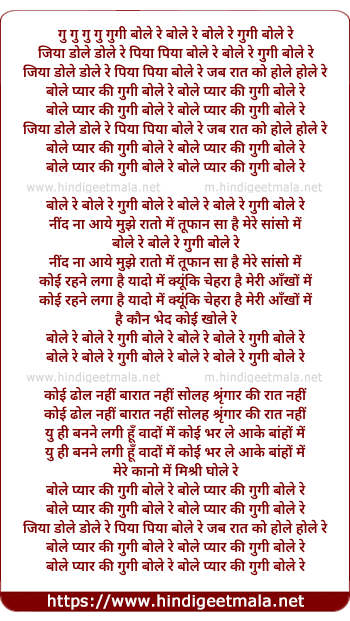 गु गु गु गु गुगी बोले रे बोले रे बोले रे गुगी बोले रे
जिया डोले डोले रे पिया पिया बोले रे बोले रे गुगी बोले रे
जिया डोले डोले रे पिया पिया बोले रे जब रात को होले होले रे
बोले प्यार की गुगी बोले रे बोले प्यार की गुगी बोले रे
बोले प्यार की गुगी बोले रे बोले प्यार की गुगी बोले रे
जिया डोले डोले रे पिया पिया बोले रे जब रात को होले होले रे
बोले प्यार की गुगी बोले रे बोले प्यार की गुगी बोले रे
बोले प्यार की गुगी बोले रे बोले प्यार की गुगी बोले रे
www.hindigeetmala.net m.hindigeetmala.net
बोले रे बोले रे गुगी बोले रे बोले रे बोले रे गुगी बोले रे
नींद ना आये मुझे रातो में तूफान सा है मेरे सांसो में
बोले रे बोले रे गुगी बोले रे
नींद ना आये मुझे रातो में तूफान सा है मेरे सांसो में
कोई रहने लगा है यादो में क्यूंकि चेहरा है मेरी आँखों में
कोई रहने लगा है यादो में क्यूंकि चेहरा है मेरी आँखों में
है कौन भेद कोई खोले रे
बोले रे बोले रे गुगी बोले रे बोले रे बोले रे गुगी बोले रे
बोले रे बोले रे गुगी बोले रे बोले रे बोले रे गुगी बोले रे
www.hindigeetmala.net m.hindigeetmala.net
कोई ढोल नहीं बारात नहीं सोलह श्रृंगार की रात नहीं
कोई ढोल नहीं बारात नहीं सोलह श्रृंगार की रात नहीं
यु ही बनने लगी हूँ वादों में कोई भर ले आके बांहों में
यु ही बनने लगी हूँ वादों में कोई भर ले आके बांहों में
मेरे कानो में मिश्री घोले रे
बोले प्यार की गुगी बोले रे बोले प्यार की गुगी बोले रे
बोले प्यार की गुगी बोले रे बोले प्यार की गुगी बोले रे
जिया डोले डोले रे पिया पिया बोले रे जब रात को होले होले रे
बोले प्यार की गुगी बोले रे बोले प्यार की गुगी बोले रे
बोले प्यार की गुगी बोले रे बोले प्यार की गुगी बोले रे
https://www.hindigeetmala.net